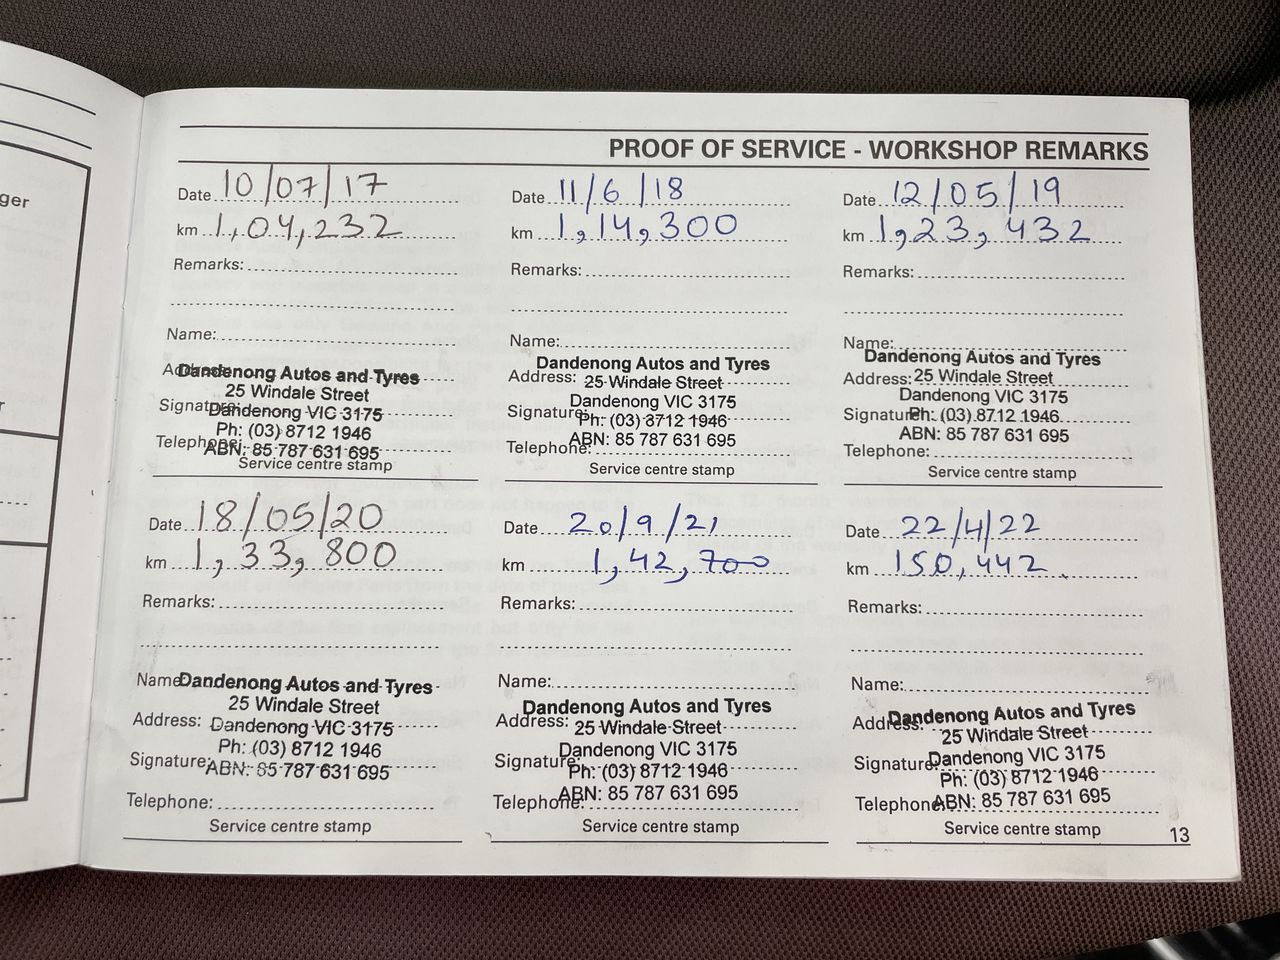 ger
PROOF OF SERVICE - WORKSHOP REMARKS
Date 10/07/17
km 1,04,232
Remarks:
Name:
Address:
Dandenong Autos and Tyres
25 Windale Street
Signature:
Dandenong VIC 3175
Ph: (03) 8712 1946
Telephone:
ABN: 85 787 631 695
Service centre stamp
Date 11/6/18
km 1,14,300
Remarks:
Name:
Dandenong Autos and Tyres
Address: 25 Windale Street
Dandenong VIC 3175
Signature: Ph: (03) 8712 1946
ABN: 85 787 631 695
Telephone:
Service centre stamp
Date 12/05/19
km 1,23,432
Remarks:
Name:
Dandenong Autos and Tyres
Address: 25 Windale Street
Dandenong VIC 3175
Signature: Ph: (03) 8712 1946
ABN: 85 787 631 695
Telephone:
Service centre stamp
Date 18/05/20
km 1,33,800
Remarks:
Name:
Dandenong Autos and Tyres
25 Windale Street
Address: Dandenong VIC 3175
Ph: (03) 8712 1946
Signature: ABN: 85 787 631 695
Telephone:
Service centre stamp
Date 20/9/21
km 1,42,700
Remarks:
Name:
Dandenong Autos and Tyres
Address: 25 Windale Street
Dandenong VIC 3175
Signature: Ph: (03) 8712 1946
ABN: 85 787 631 695
Telephone:
Service centre stamp
Date 22/4/22
km 150,442
Remarks:
Name:
Dandenong Autos and Tyres
Address: 25 Windale Street
Dandenong VIC 3175
Signature: Ph: (03) 8712 1946
ABN: 85 787 631 695
Telephone:
Service centre stamp
13